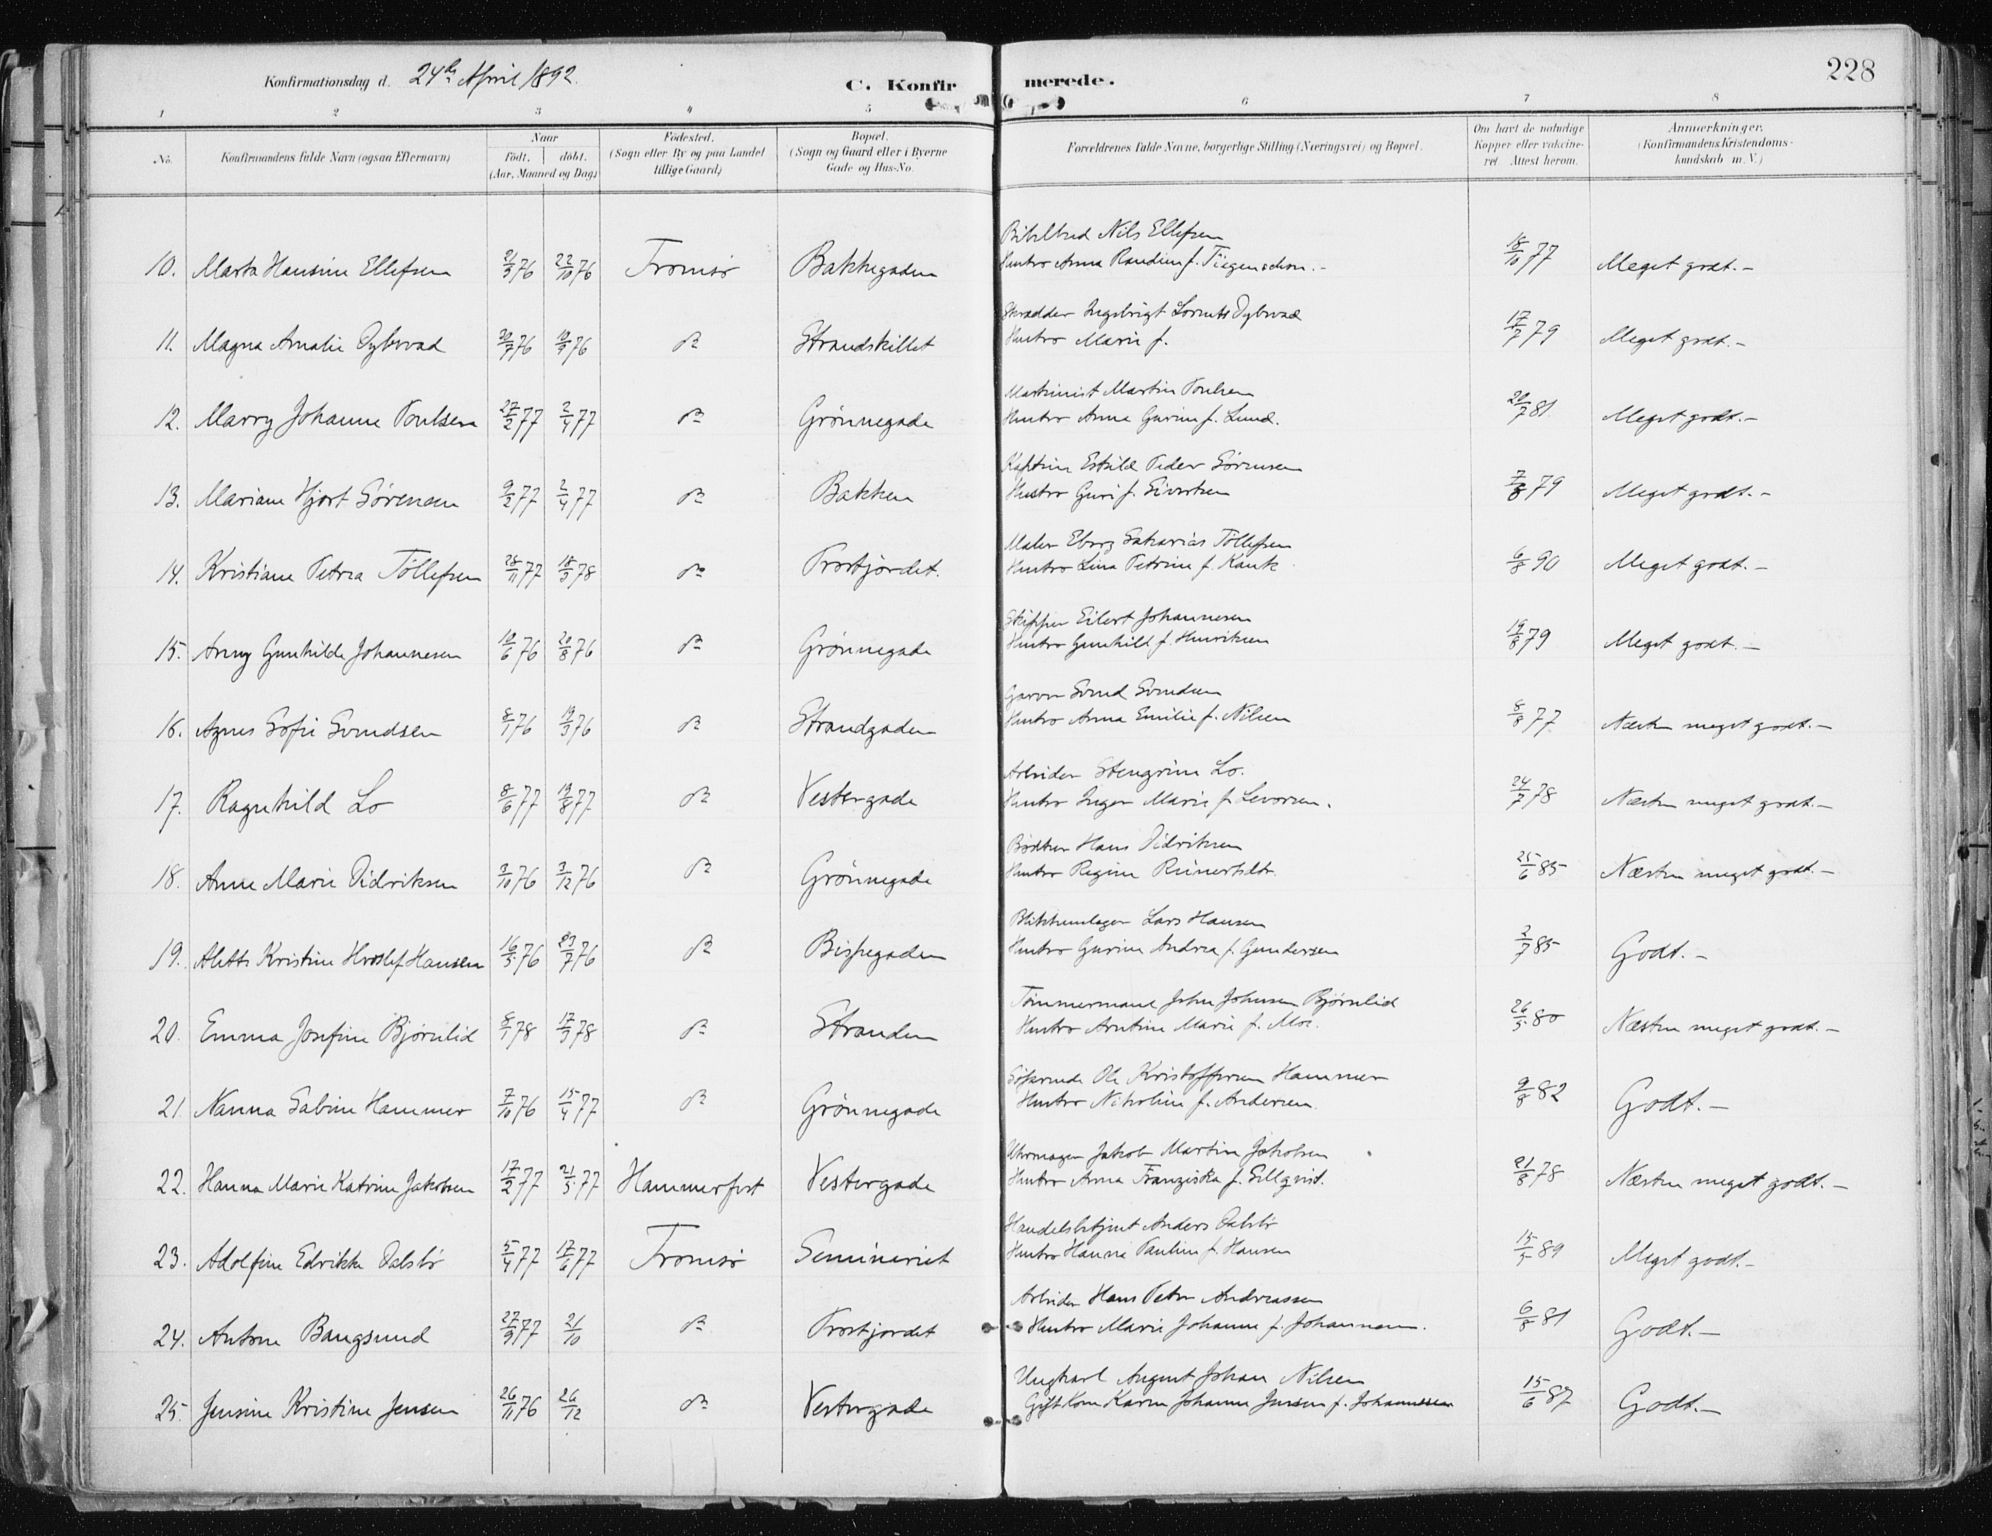 Konfirmationsdag d. 24de April 1892.
C. Konfirmerede.
228
1 2 3 4 5 6 7 8
No. Konfirmandens fulde Navn (ogsaa Efternavn) Naar født. døbt. (Aar, Maaned og Dag) Fødested. (Sogn eller By og paa Landet tillige Gaard) Bopæl. (Sogn og Gaard eller i Byerne Gade og Hus-No. Forældrenes fulde Navne, borgerlige Stilling (Næringsvei) og Bopæl. Om havt de naturlige Kopper eller vakcineret. Attest herom. Anmærkninger. (Konfirmandens Kristendomskundskab m. V.)
Nils Ellefsen
10. Marta Hansine Ellefsen 21/9 76 22/10 76 Tromsø Bakkegaden Hustro Anna Randine f. 18/10 77 Meget godt. —
Skrædder Ingebrigt Dybvad
11. Magna Amalie Dybvad 30/7 76 10/9 76 do Strandskillet Hustro Marie f. 17/7 79 Meget godt. —
Maskinist Martin Poulsen
12. Marry Johanne Poulsen 27/2 77 2/4 77 do Grønnegade Hustro Anna Gurine f. Lund. 20/7 81 Meget godt. —
Kaptein Eskild Peder Sørensen
13. Mariane Hjort Sørensen 9/2 77 2/4 77 do Bakken Hustro Guri f. Sivertsen 7/8 79 Meget godt. —
Maler Eberg Sakarias Tøllefsen
14. Kristiane Petrea Tøllefsen 28/11 77 18/3 78 do Prostjordet. Hustro Lina Petrine f. Kauk 6/8 90 Meget godt. —
Skipper Eilert Johannesen
15. Anny Gunhilde Johannesen 10/6 76 20/8 76 do Grønnegade Hustro Gunhild f. Henriksen 19/8 79 Meget godt. —
Garver Svend Svendsen
16. Agnes Sofie Svendsen 8/1 76 19/3 76 do Strandgaden Hustro Anna Emilie f. Nilsen 8/8 77 Næsten meget godt. —
Arbeider Stengrim Lo.
17. Ragnhild Lo 8/6 77 19/8 77 do Vestergade Hustro Inger Marie f. Levorsen. 24/7 78 Næsten meget godt. —
Bødker Hans Didriksen
18. Anne Marie Didriksen 3/10 76 3/12 76 do Grønnegade Hustro Regine 25/6 85 Næsten meget godt. —
Blikkenslager Lars Hansen
19. Aletta Kristine Hroslef Hansen 16/5 76 23/7 76 do Bispegaden Hustro Gurine Andrea f. Gundersen 2/7 85 Godt. —
Tømmermand John Johnsen Bjørnlid
20. Emma Josefine Bjørnlid 8/1 78 17/3 78 do Stranden Hustro Arntine Marie f. Moe. 26/5 80 Næsten meget godt. —
Søfarende Ole Kristoffersen Hammer
21. Nanna Sabine Hammer 7/10 76 15/4 77 do Grønnegade Hustro Nikoline f. Andersen. 9/8 82 Godt. —
Uhrmager Jakob Martin Jakobsen
22. Hanna Marie Katrine Jakobsen 17/2 77 21/5 77 Hammerfest Vestergade Hustro Anna Franziska f. Sellqvist. 21/8 78 Næsten meget godt. —
Handelsbetjent Anders Dalsbø
23. Adolfine Edrikke Dalsbø 5/4 77 17/6 77 Tromsø Seminariet Hustro Hanna Pauline f. Hansen 15/5 89 Meget godt. —
Arbeider Hans Peter Andreassen
24. Antone Bangsund 27/9 77 21/10 do Prostjordet Hustro Marie Johanne f. Johannesen. 6/8 81 Godt. —
Ungkarl August Johan Nilsen
25. Jensine Kristine Jensen 26/11 76 26/12 do Vestergade Gift Kone Karen Johanne Jensen f. Johannessen 15/6 87 Godt. —